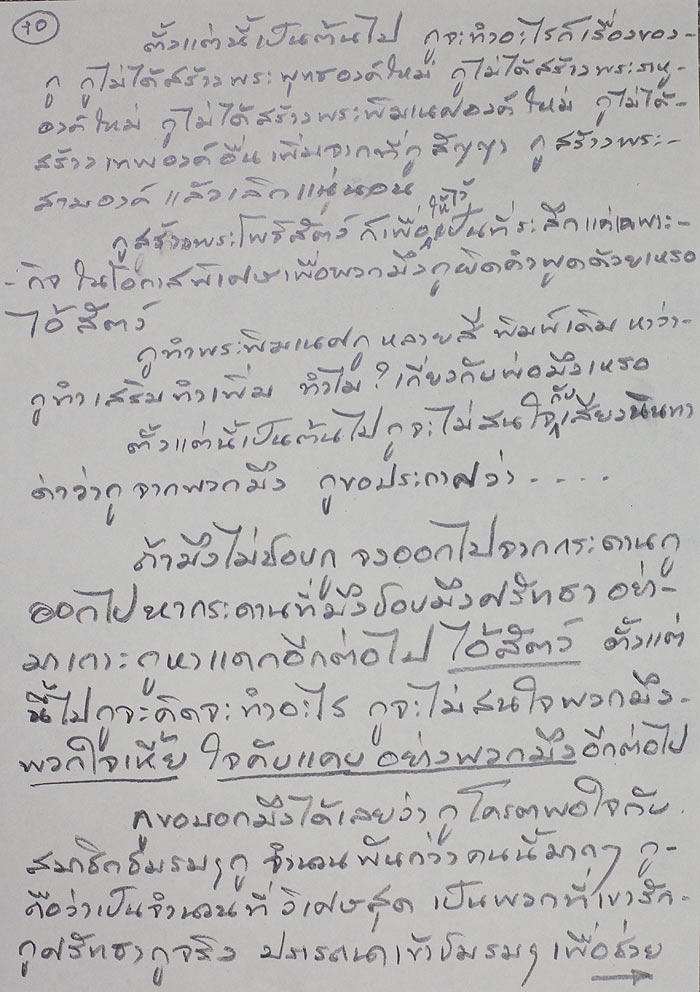 40
ตั้งแต่นี้เป็นต้นไป กูจะทำอะไรก็เรื่องของ-
กู กูไม่ได้สร้างพระพุทธองค์ใหม่ กูไม่ได้สร้างพระราหู-
องค์ใหม่ กูไม่ได้สร้างพระพิฆเนศองค์ใหม่ กูไม่ได้-
สร้างเทพองค์อื่นเพิ่มจากที่กูสัญญา กูสร้างพระ-
สามองค์ แล้วเลิกแน่นอน
กูสร้างพระโพธิสัตว์ ก็เพื่อให้ไว้เป็นที่ระลึกแค่เฉพาะ-
-กิจ ในโอกาสพิเศษเพื่อพวกมึงกูผิดคำพูดด้วยเหรอ
ไอ้สัตว์
กูทำพระพิฆเนศกูหลายสี พิมพ์เดิม หาว่า-
กูทำเสริมทำเพิ่ม ทำไม? เกี่ยงกับพ่อมึงเหรอ
ตั้งแต่นี้เป็นต้นไปกูจะไม่สนใจกับเสียงนินทา
ด่าว่ากู จากพวกมึง กูขอประกาศว่า . . . .
ถ้ามึงไม่ชอบกู จงออกไปจากกระดานกู
ออกไปหากระดานที่มึงชอบมึงศรัทธา อย่า-
มาเกาะกูหาแดกอีกต่อไป ไอ้สัตว์ ตั้งแต่
นี้ไปกูจะคิดจะทำอะไร กูจะไม่สนใจพวกมึง-
พวกใจเหี้ย ใจคับแคบ อย่างพวกมึงอีกต่อไป
กูขอบอกมึงได้เลยว่า กูโครตพอใจกับ
สมาชิกชมรมๆกู จำนวนพันกว่าคนนี้มากๆ กู-
ถือว่าเป็นจำนวนที่วิเศษสุด เป็นพวกที่เขารัก-
กูศรัทธากูจริง ปรารถนาเข้าชมรมๆ เพื่อช่วย